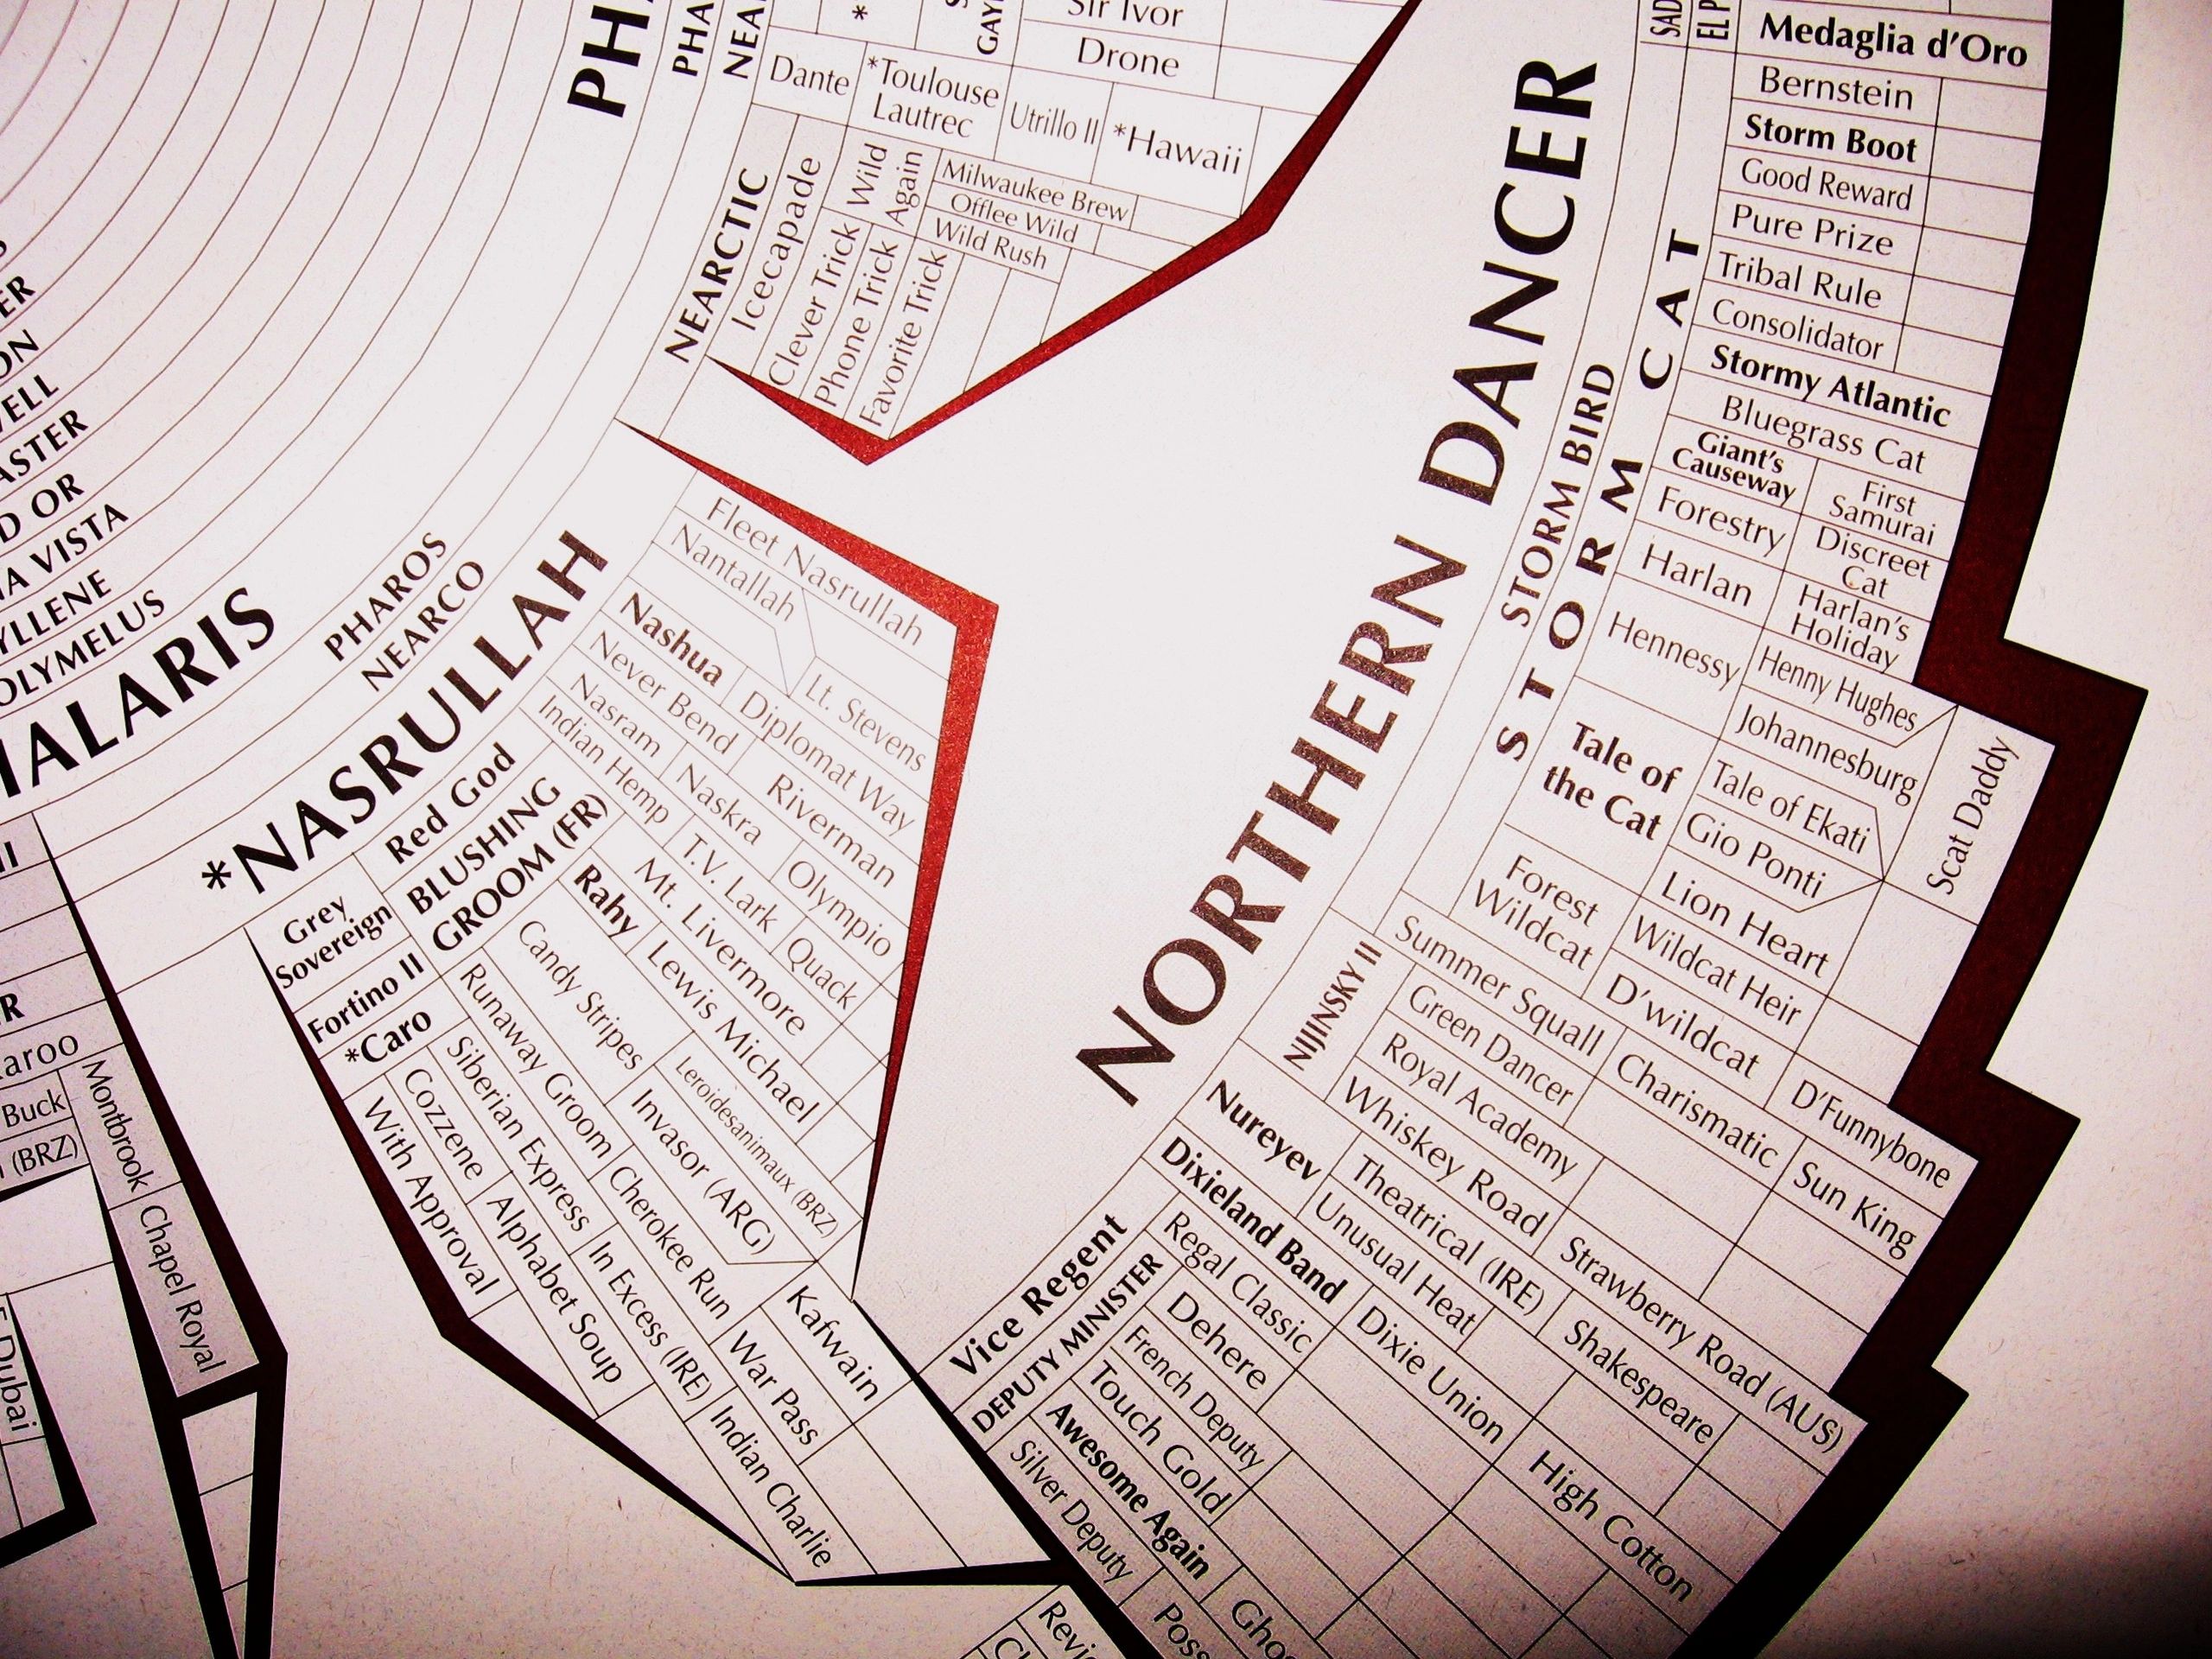 *
Sir Ivor
Drone
Dante
*Toulouse
Lautrec
Utrillo II
*Hawaii
NEARCTIC
Icecapade
Wild
Again
Milwaukee Brew
Offlee Wild
Wild Rush
Clever Trick
Phone Trick
Favorite Trick
VISTA
PHAROS
NEARCO
*NASRULLAH
Fleet Nasrullah
Nantallah
Lt. Stevens
Nashua
Diplomat Way
Never Bend
Riverman
Nasram
Naskra
Olympio
Indian Hemp
T.V. Lark
Quack
Red God
BLUSHING
GROOM (FR)
Mt. Livermore
Rahy
Lewis Michael
Candy Stripes
Leroidesanimaux (BRZ)
Invasor (ARG)
Runaway Groom
Cherokee Run
Kafwain
War Pass
Grey
Sovereign
Fortino II
*Caro
Siberian Express
In Excess (IRE)
Indian Charlie
Cozzene
Alphabet Soup
With Approval
Buck
(BRZ)
Montbrook
Chapel Royal
Dubai
NORTHERN DANCER
STORM BIRD
STORM CAT
Medaglia d'Oro
Bernstein
Storm Boot
Good Reward
Pure Prize
Tribal Rule
Consolidator
Stormy Atlantic
Bluegrass Cat
Giant's
Causeway
First
Samurai
Forestry
Discreet
Cat
Harlan
Harlan's
Holiday
Hennessy
Henny Hughes
Johannesburg
Scat Daddy
Tale of
the Cat
Tale of Ekati
Gio Ponti
Lion Heart
Forest
Wildcat
Wildcat Heir
D'wildcat
D'Funnybone
Summer Squall
Charismatic
Sun King
NIJINSKY II
Green Dancer
Royal Academy
Whiskey Road
Strawberry Road (AUS)
Nureyev
Theatrical (IRE)
Shakespeare
Unusual Heat
Dixieland Band
Dixie Union
High Cotton
Vice Regent
DEPUTY MINISTER
Regal Classic
Dehere
French Deputy
Touch Gold
Awesome Again
Silver Deputy